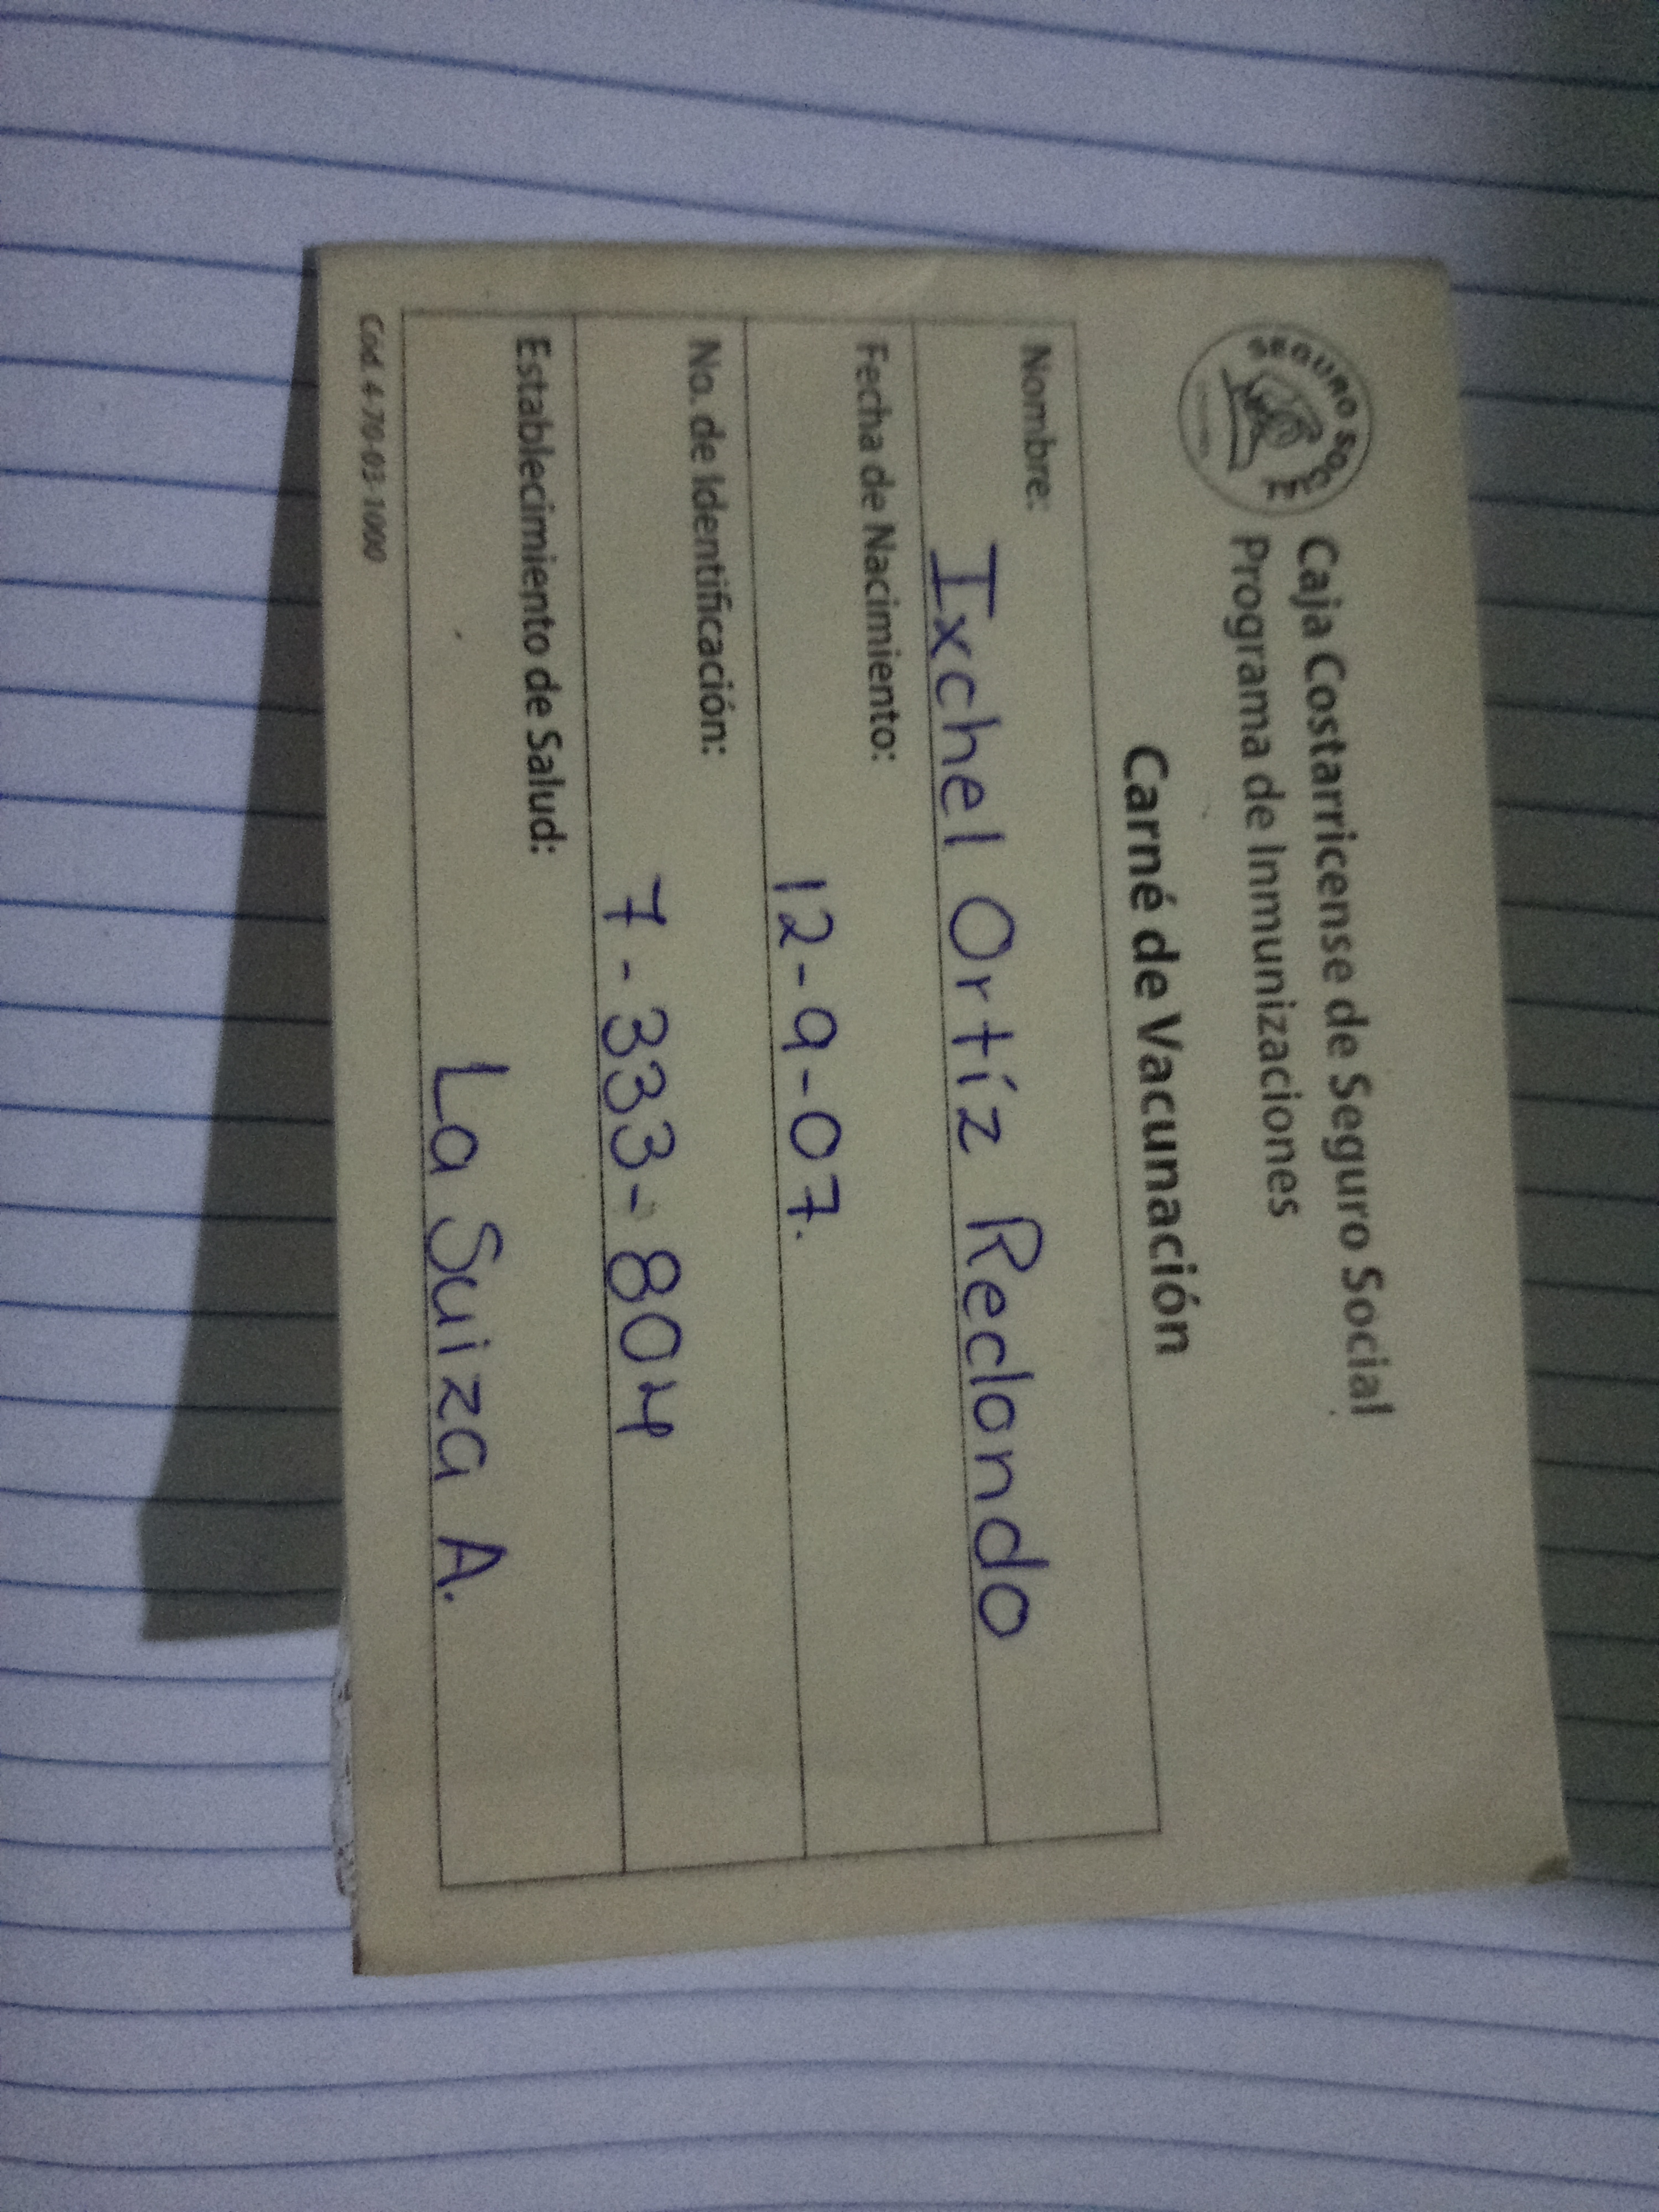 SEGURO SOCIAL
Caja Costarricense de Seguro Social
Programa de Inmunizaciones
Carné de Vacunación
Nombre: Ixchel Ortíz Redondo
Fecha de Nacimiento: 12-9-07.
No. de Identificación: 7-333-804
Establecimiento de Salud: La Suiza A.
Cód. 4-70-03-1000